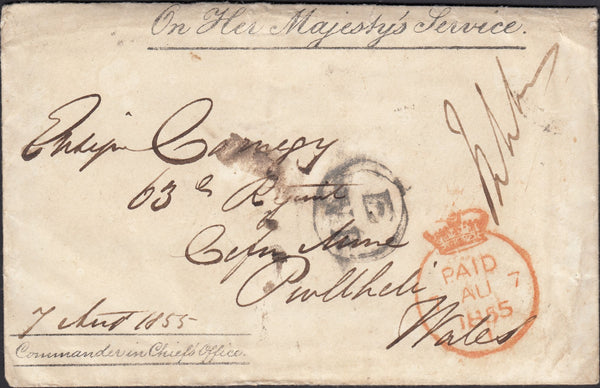 On Her Majesty's Service.
Ensign Carnegy
63d Regiment
Cefn Mine
Pwllheli
Wales
7 Augt 1855
Commander in Chief's Office.
PAID
7
AU
1855
E